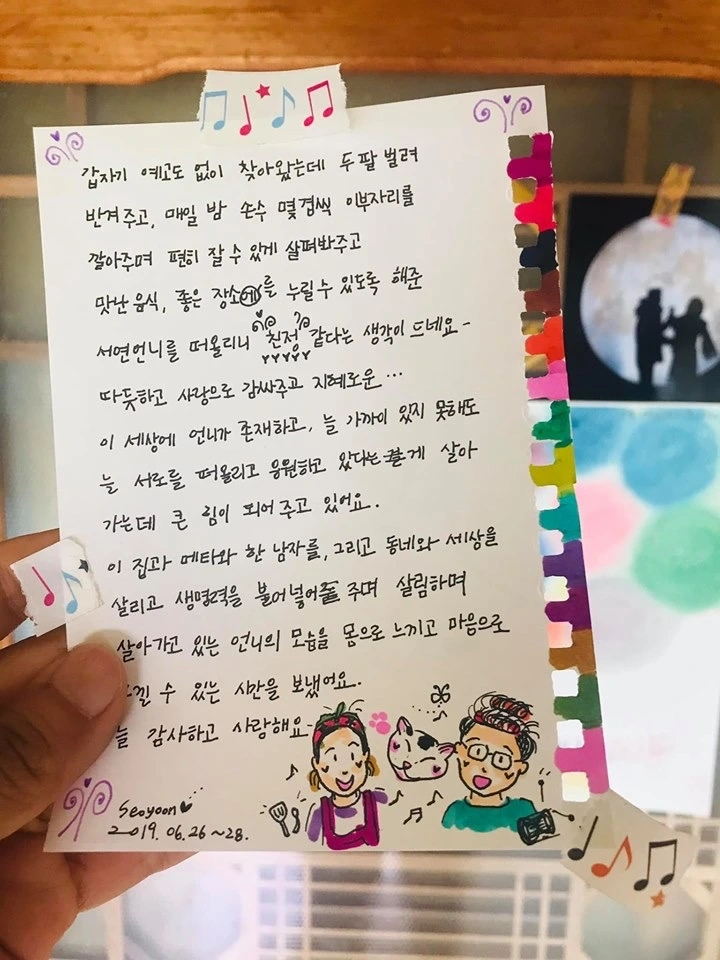 갑자기 예고도 없이 찾아왔는데 두 팔 벌려
반겨주고, 매일 밤 손수 몇겹씩 이부자리를
깔아주며 편히 잘 수 있게 살펴봐주고
맛난 음식, 좋은 장소를 누릴 수 있도록 해준
서연언니를 떠올리니 '친정' 같다는 생각이 드네요-
따듯하고 사랑으로 감싸주고 지혜로운...
이 세상에 언니가 존재하고, 늘 가까이 있지 못해도
늘 서로를 떠올리고 응원하고 있다는 게 살아
가는데 큰 힘이 되어 주고 있어요.
이 집과 메타와 한 남자를, 그리고 동네와 세상을
살리고 생명력을 불어넣어 주며 살림하며
살아가고 있는 언니의 모습을 몸으로 느끼고 마음으로
낄 수 있는 시간을 보냈어요.
늘 감사하고 사랑해요
Seoyoon
2019. 06. 26 ~ 28.